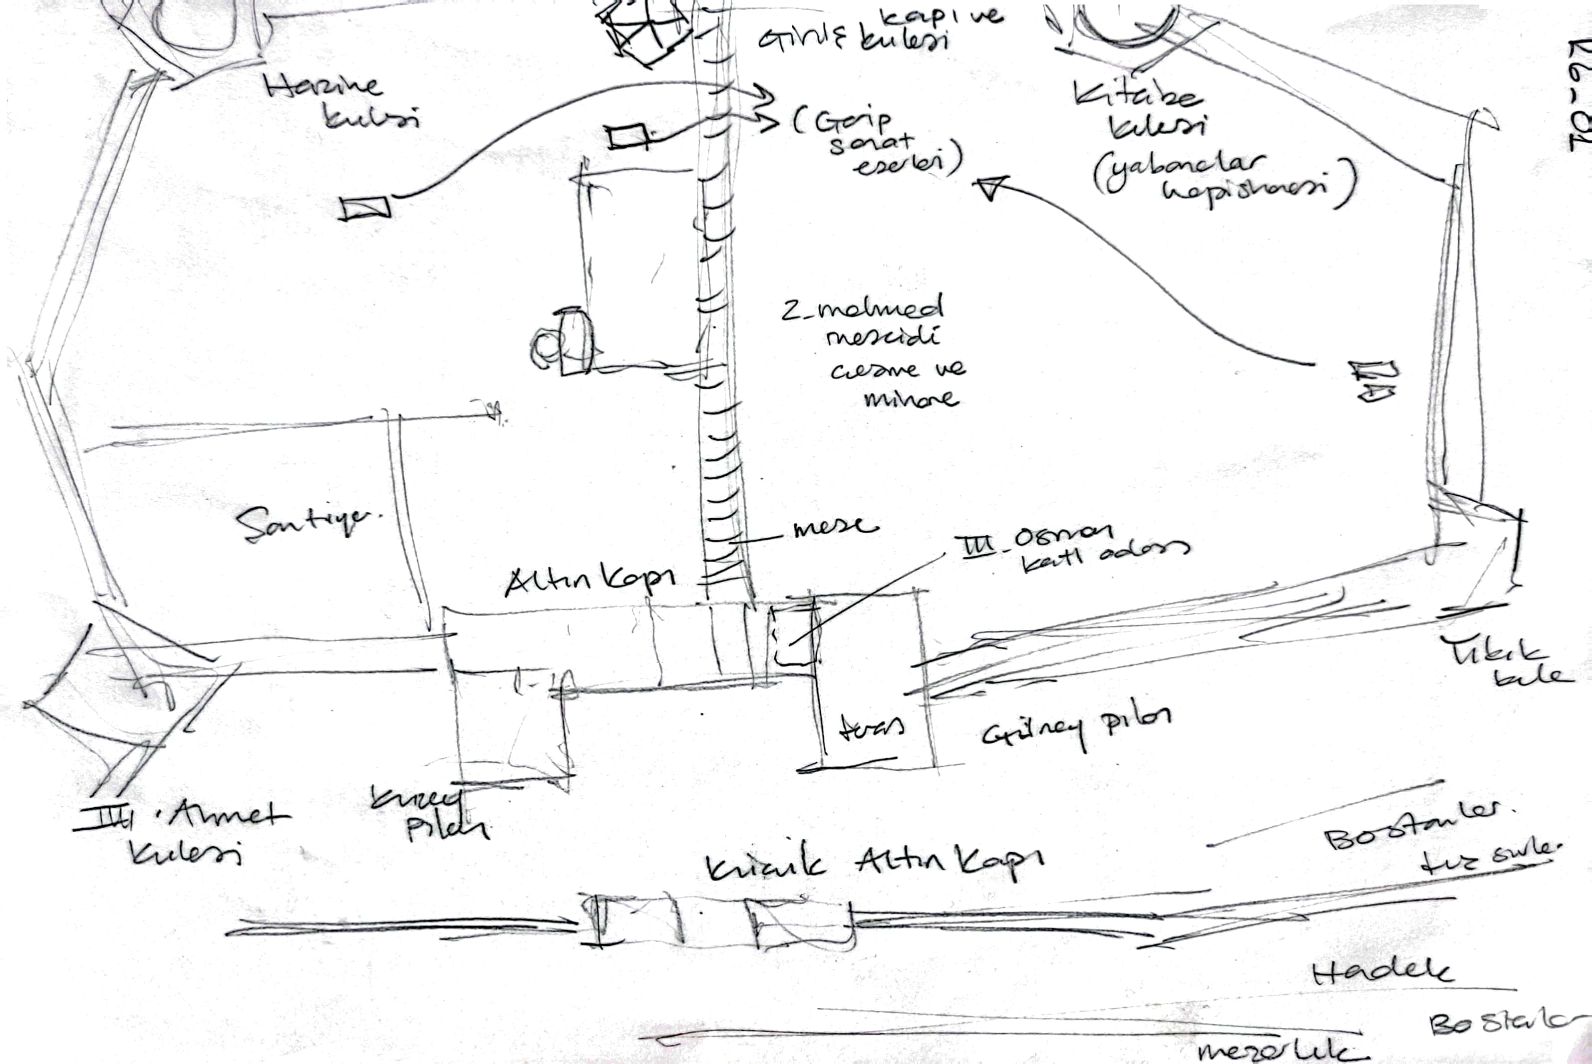 kapı ve
Giriş kulesi
Hazine
kulesi
Kitabe
kulesi
(yabancılar
hapishanesi)
(Garip
sanat
eserleri)
2. mehmed
mescidi
çeşme ve
minare
Şantiye.
mese
III. Osman
katl odası
Altın Kapı
Yıkık
kule
teras
Güney pilon
III. Ahmet
kulesi
kuzey
pilon
Küçük Altın Kapı
Bostanlar.
Hadek
Bostanlar
mezarlık